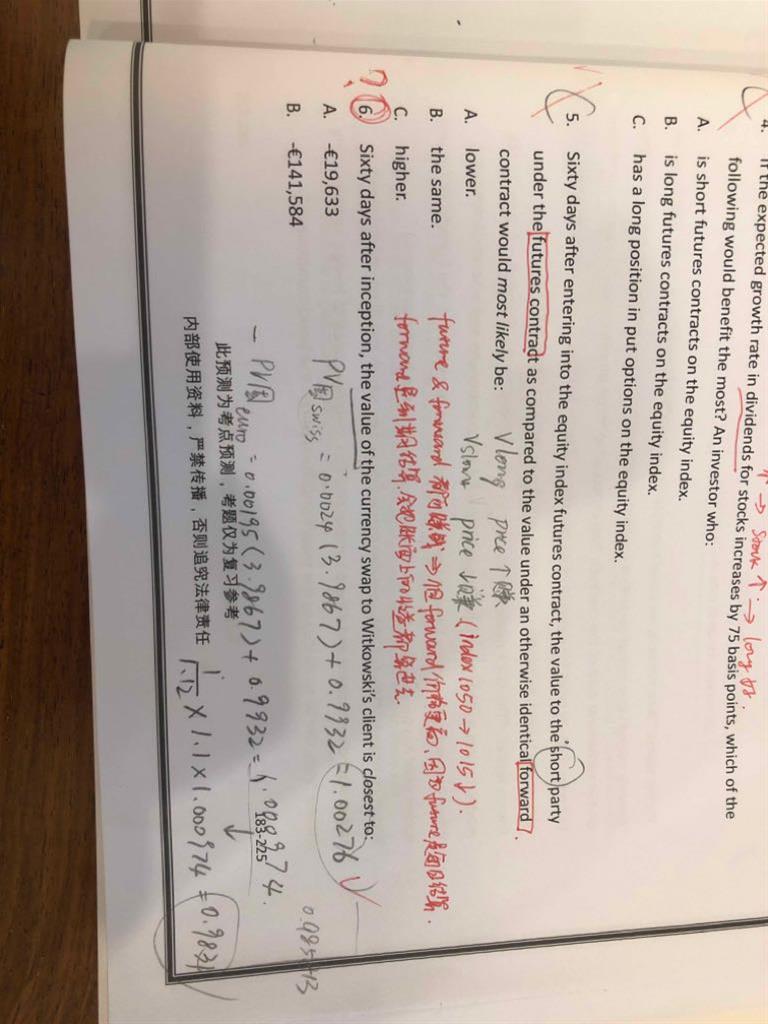 4. If the expected growth rate in dividends for stocks increases by 75 basis points, which of the
following would benefit the most? An investor who:
A. is short futures contracts on the equity index.
B. is long futures contracts on the equity index.
C. has a long position in put options on the equity index.
↑ → Stock ↑ → long
5. Sixty days after entering into the equity index futures contract, the value to the short party
under the futures contract as compared to the value under an otherwise identical forward
contract would most likely be:
A. lower.
B. the same.
C. higher.
Vlong price ↑ 赚
Vshort price ↓ 赚 (index 1050 → 1015 ↓).
future & forward 都可赚钱 ⇒ 但 forward 价格更高, 因为 future 是每日结算.
forward 是到期结算,
6. Sixty days after inception, the value of the currency swap to Witkowski's client is closest to:
A. -€19,633
B. -€141,584
PV固 swiss = 0.0024 (3.9867) + 0.9932 = 1.00276
- PV固 euro = 0.00195 (3.9867) + 0.9932 = 1.000974.
183-225
此预测为考点预测，考题仅为复习参考
内部使用资料，严禁传播，否则追究法律责任
1/1.12 × 1.1 × 1.000974 = 0.9831